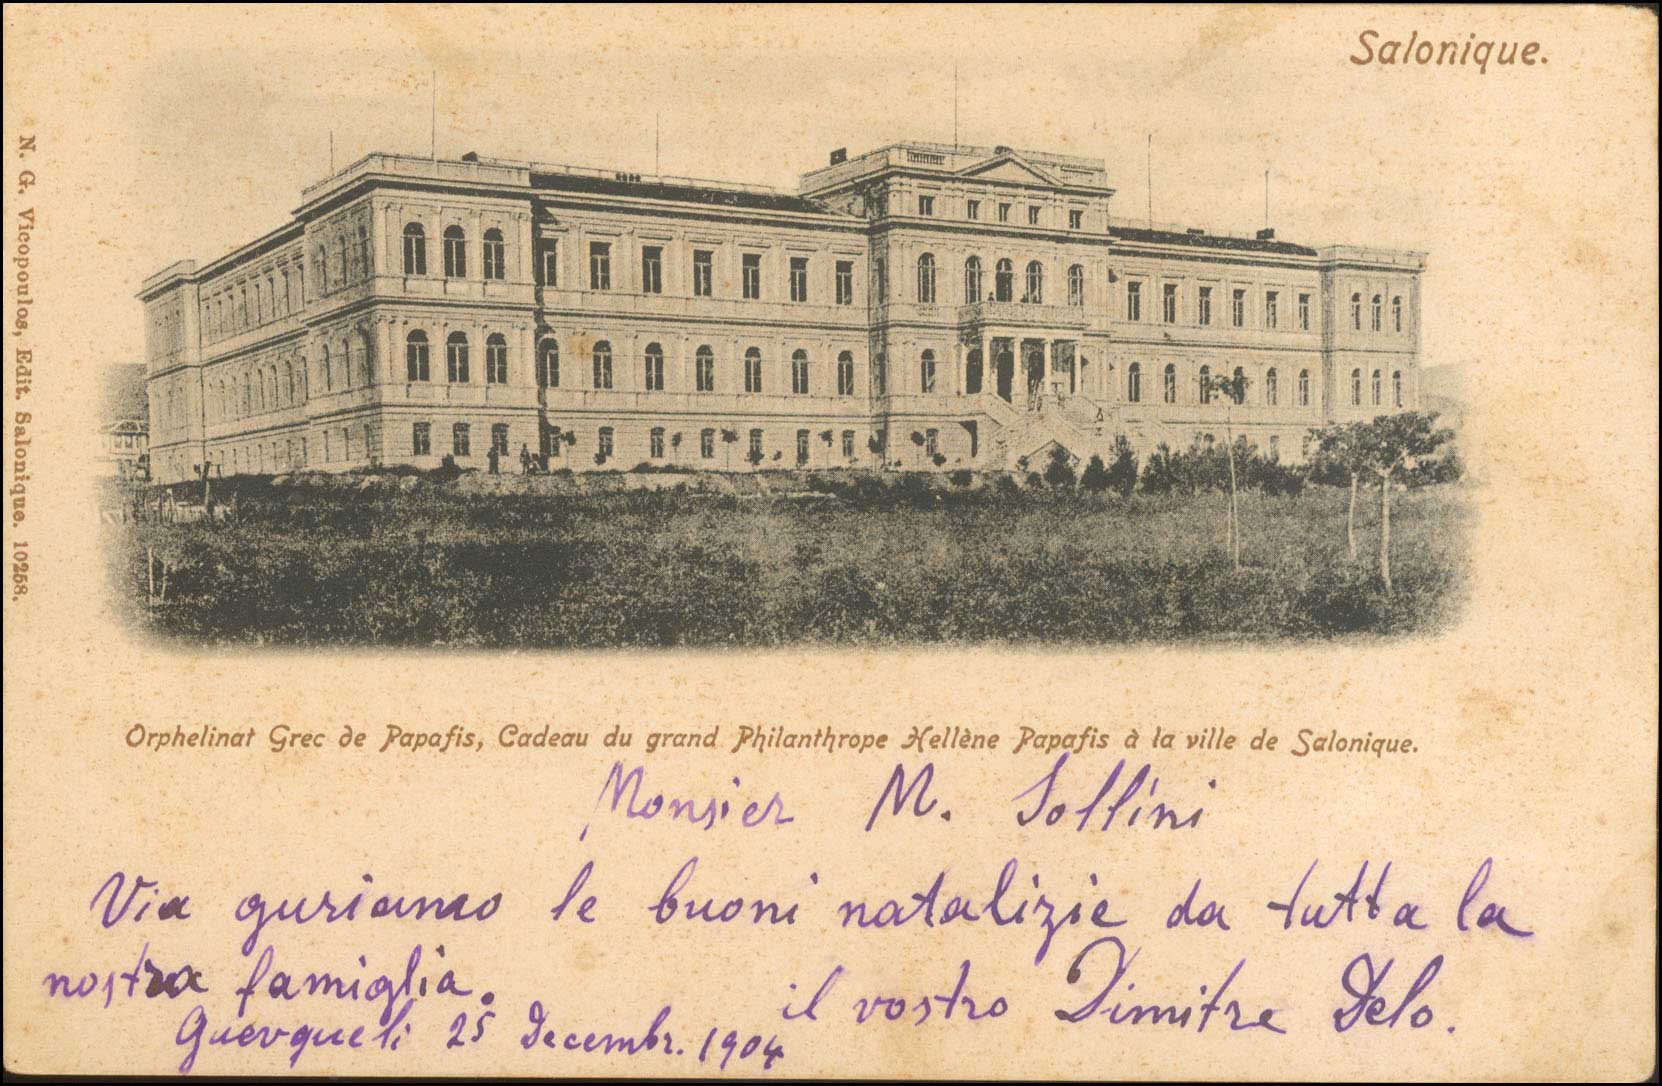 Salonique.
N. G. Vicopoulos, Edit. Salonique. 10258.
Orphelinat Grec de Papafis, Cadeau du grand Philanthrope Hellène Papafis à la ville de Salonique.
Monsier M. Sollini
Via guriamo le buoni natalizie da tutta la
nostra famiglia.
il vostro Dimitre Delo.
Guevgueli 25 Decembr. 1904